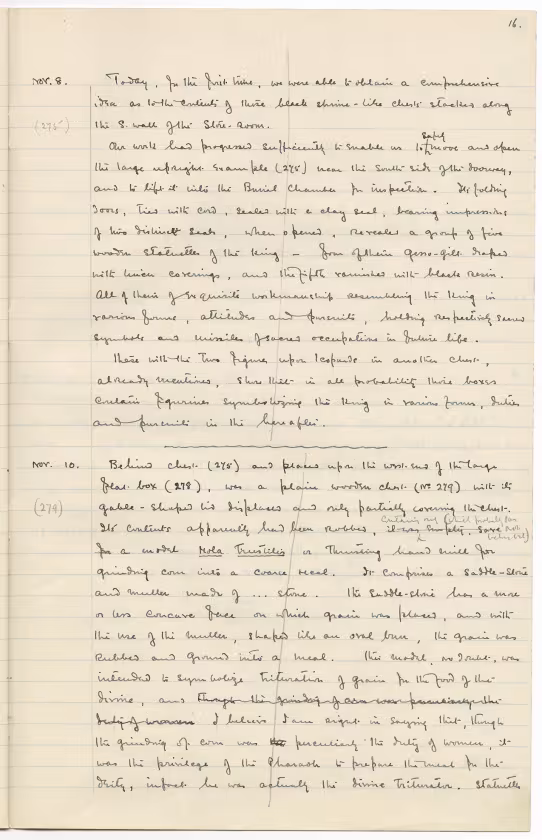 16.
Nov. 8. Today, for the first time, we were able to obtain a comprehensive
(275) idea as to the contents of those black shrine-like chests stacked along
the S. wall of the Store-Room.
Our work had progressed sufficiently to enable us to safely move and open
the large upright example (275) near the south side of the doorway,
and to lift it into the Burial Chamber for inspection. Its folding
doors, tied with cord, sealed with a clay seal, bearing impressions
of two distinct seals, when opened, revealed a group of five
wooden statuettes of the King – four of them gesso-gilt draped
with linen coverings, and the fifth varnished with black resin.
All of them of exquisite workmanship resembling the King in
various forms, attitudes and pursuits, holding respectively sacred
symbols and missiles of sacred occupations in future life.
These with the two figures upon leopards in another chest,
already mentioned, show that in all probability those boxes
contain figurines symbolizing the King in various forms, duties
and pursuits in the hereafter.
Nov. 10. Behind chest (275) and placed upon the west end of the large
(279) flat box (278), was a plain wooden chest (No 279) with its
gable-shaped lid displaced and only partially covering the chest.
Its contents apparently had been robbed, it was empty, save
for a model Mola Trusatilis or Thrusting hand mill for
grinding corn into a coarse meal. It comprised a saddle-stone
and muller made of ... stone. The saddle-stone has a more
or less concave face on which grain was placed, and with
the use of the muller, shaped like an oval bun, the grain was
rubbed and ground into a meal. This model, no doubt, was
intended to symbolize trituration of grain for the food of the
divine, and though the grinding of corn was peculiarly the
duty of women I believe I am right in saying that, though
the grinding of corn was peculiarly the duty of women, it
was the privilege of the Pharaoh to prepare the meal for the
deity, in fact he was actually the divine triturator. Statuettes